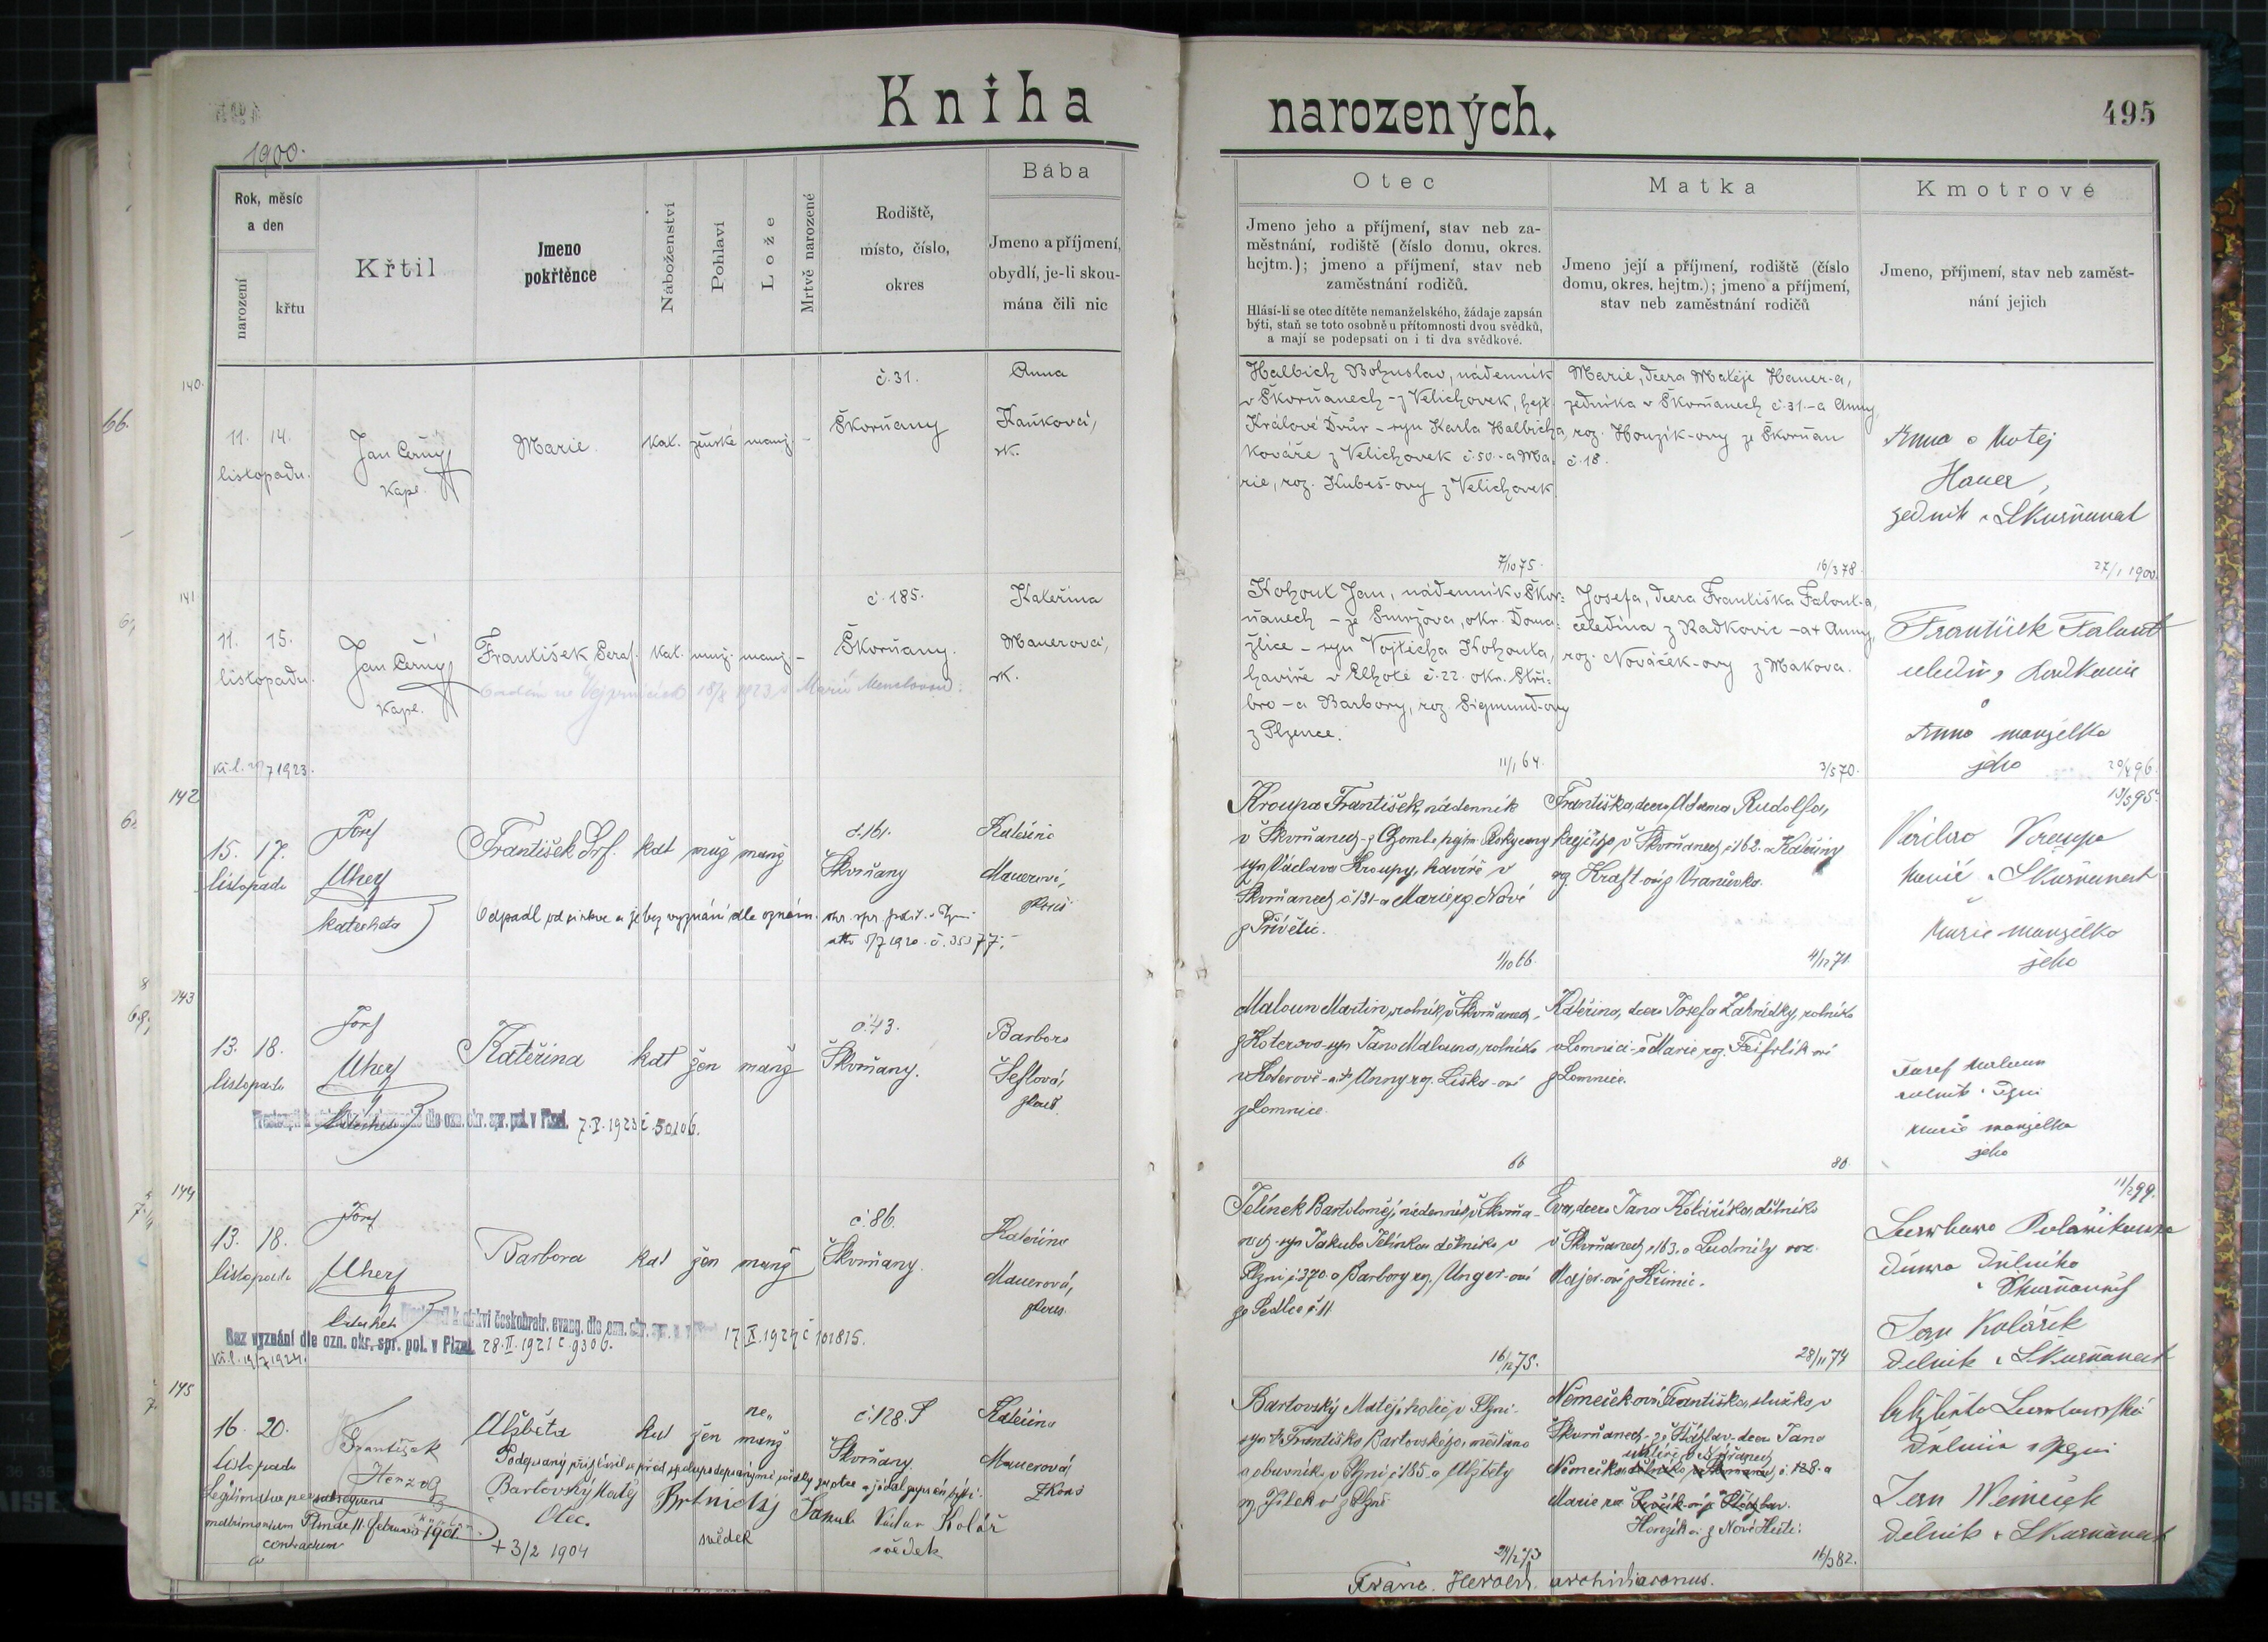 Kniha narozených.
495
1900.
Rok, měsíc
a den
narození
křtu
Křtil
Jmeno
pokřtěnce
Náboženství
Pohlaví
Lože
Mrtvě narozené
Rodiště,
místo, číslo,
okres
Bába
Jmeno a příjmení,
obydlí, je-li skou-
mána čili nic
Otec
Jmeno jeho a příjmení, stav neb za-
městnání, rodiště (číslo domu, okres.
hejtm.); jmeno a příjmení, stav neb
zaměstnání rodičů.
Hlásí-li se otec dítěte nemanželského, žádaje zapsán
býti, staň se toto osobně u přítomnosti dvou svědků,
a mají se podepsati on i ti dva svědkové.
Matka
Jmeno její a příjmení, rodiště (číslo
domu, okres. hejtm.); jmeno a příjmení,
stav neb zaměstnání rodičů
Kmotrové
Jmeno, příjmení, stav neb zaměst-
nání jejich
140.
11. 14.
listopadu.
Jan Černý
Kapl.
Marie.
kat. ženské manž. -
č. 31.
Škorňany
Anna
Kaňková,
zk.
Halbich Bohuslav, nádenník
v Škorňanech - z Velichovek, hejt.
Králové Dvůr - syn Karla Halbicha,
kováře z Velichovek č. 50. - a Ma-
rie, roz. Kubeš-ovy z Velichovek
7/10 75.
Marie, dcera Matěje Hauer-a,
zedníka v Škorňanech č. 31. - a Anny,
roz. Honzík-ovy ze Škorňan
č. 18.
16/3 78.
Anna a Matěj
Hauer,
zedník v Škvrňanech
27/1 1900.
141
11. 15.
listopadu.
Jan Černý
Kapl.
František Seraf.
kat. muž. manž. -
18/8 1923 s Marií
č. 185.
Škorňany.
Kateřina
Mauerová,
zk.
Kohout Jan, nádenník v Škor-
ňanech - ze Smržova, okr. Doma-
žlice - syn Vojtěcha Kohouta,
havíře v Elhotě č. 22. okr. Stří-
bro - a Barbory, roz. Sigmund-ovy
z Plzence.
11/1 64.
Josefa, dcera Františka Falout-a,
čeledína z Radkovic - a + Anny,
roz. Nováček-ovy z Makova.
3/5 70.
František Falout
Anna manželka
jeho
142
15. 17.
listopadu
Josef
Uher
katecheta
František Srf.
kat muž manž
Odpadl od církve a je bez vyznání dle oznám. okr. spr. polit. v Plzni
č. 161.
Škvrňany
Kateřina
Mauerová,
zkouš
Kroupa František, nádenník
syn Václava Kroupy, havíře v
Škvrňanech č. 131 - a Marie roz. Nové
z Přívětic.
1/10 66.
Františka, dcera Adama Rudolfa,
krejčího v Škvrňanech č. 162. a Kateřiny
roz. Kraft-ové z Vranůvka.
4/12 71.
13/5 95.
Václav Kroupa
havíř v Škvrňanech
Marie manželka
jeho
143
13. 18.
listopadu
Josef
Uher
katecheta
Kateřina
kat žen manž
č. 43.
Škvrňany.
Barbora
Šeflová,
zkouš.
dle ozn. okr. spr. pol. v Plzni. 7.V.1923 č. 50106.
Maloun Martin, rolník v Škvrňanech,
z Koterova - syn Jana Malouna, rolníka
v Koterově - a + Anny roz. Liška-ové
z Lomnice.
66
Kateřina, dcera Josefa Zahrádky, rolníka
v Lomnici - a Marie, roz. Feifrlík-ové
z Lomnice.
80.
Josef Maloun
rolník v Plzni
Marie manželka
jeho
144
13. 18.
listopadu
Josef
Uher
katechet
Barbora
kat žen manž
č. 86.
Škvrňany.
Kateřina
Mauerová,
zkouš.
Přestoupil k církvi českobratr. evang. dle ozn. okr. spr. p. v Plzni 17.X.1927 č. 101815.
Bez vyznání dle ozn. okr. spr. pol. v Plzni 28.II.1921 č. 9306.
Jelínek Bartoloměj, nádenník v Škvrňa-
nech - syn Jakuba Jelínka, dělníka v
Plzni č. 370. a Barbory roz. Unger-ové
ze Sedlce č. 11.
16/12 75.
Eva, dcera Jana Kolaříka, dělníka
v Škvrňanech č. 163. a Ludmily roz.
Majer-ové z Křimic.
28/11 74
11/2 99.
Barbora Kolaříkova
dcera dělníka
v Škvrňanech
Jan Kolařík
dělník v Škvrňanech
145
16. 20.
listopadu
František
Herzog
Alžběta
kat žen ne-
manž
č. 128. S
Škvrňany.
Kateřina
Mauerová,
zkouš
Podepsaný přihlásil se před spolupodepsanými svědky za otce a žádal zapsán býti.
Bartovský Matěj
Otec.
+ 3/2 1904
Jakub
svědek
Václav Kolář
svědek
Legitimatur per subsequens
matrimonium Plznae 11. februarii 1901.
contractum
Bartovský Matěj, holič v Plzni -
syn + Františka Bartovského, měšťana
a obuvníka v Plzni č. 185. a Alžběty
roz. Jílek-ové z Plzně
24/2 73
Němečková Františka, služka v
Škvrňanech - ze Šťáhlav - dcera Jana
Němečka č. 128. a
Marie roz.
Honzík-ové z Nové Hutě.
16/3 82.
Alžběta Bartovská
v Plzni
Jan Němeček
dělník v Škvrňanech
Franc. Herold. archidiaconus.